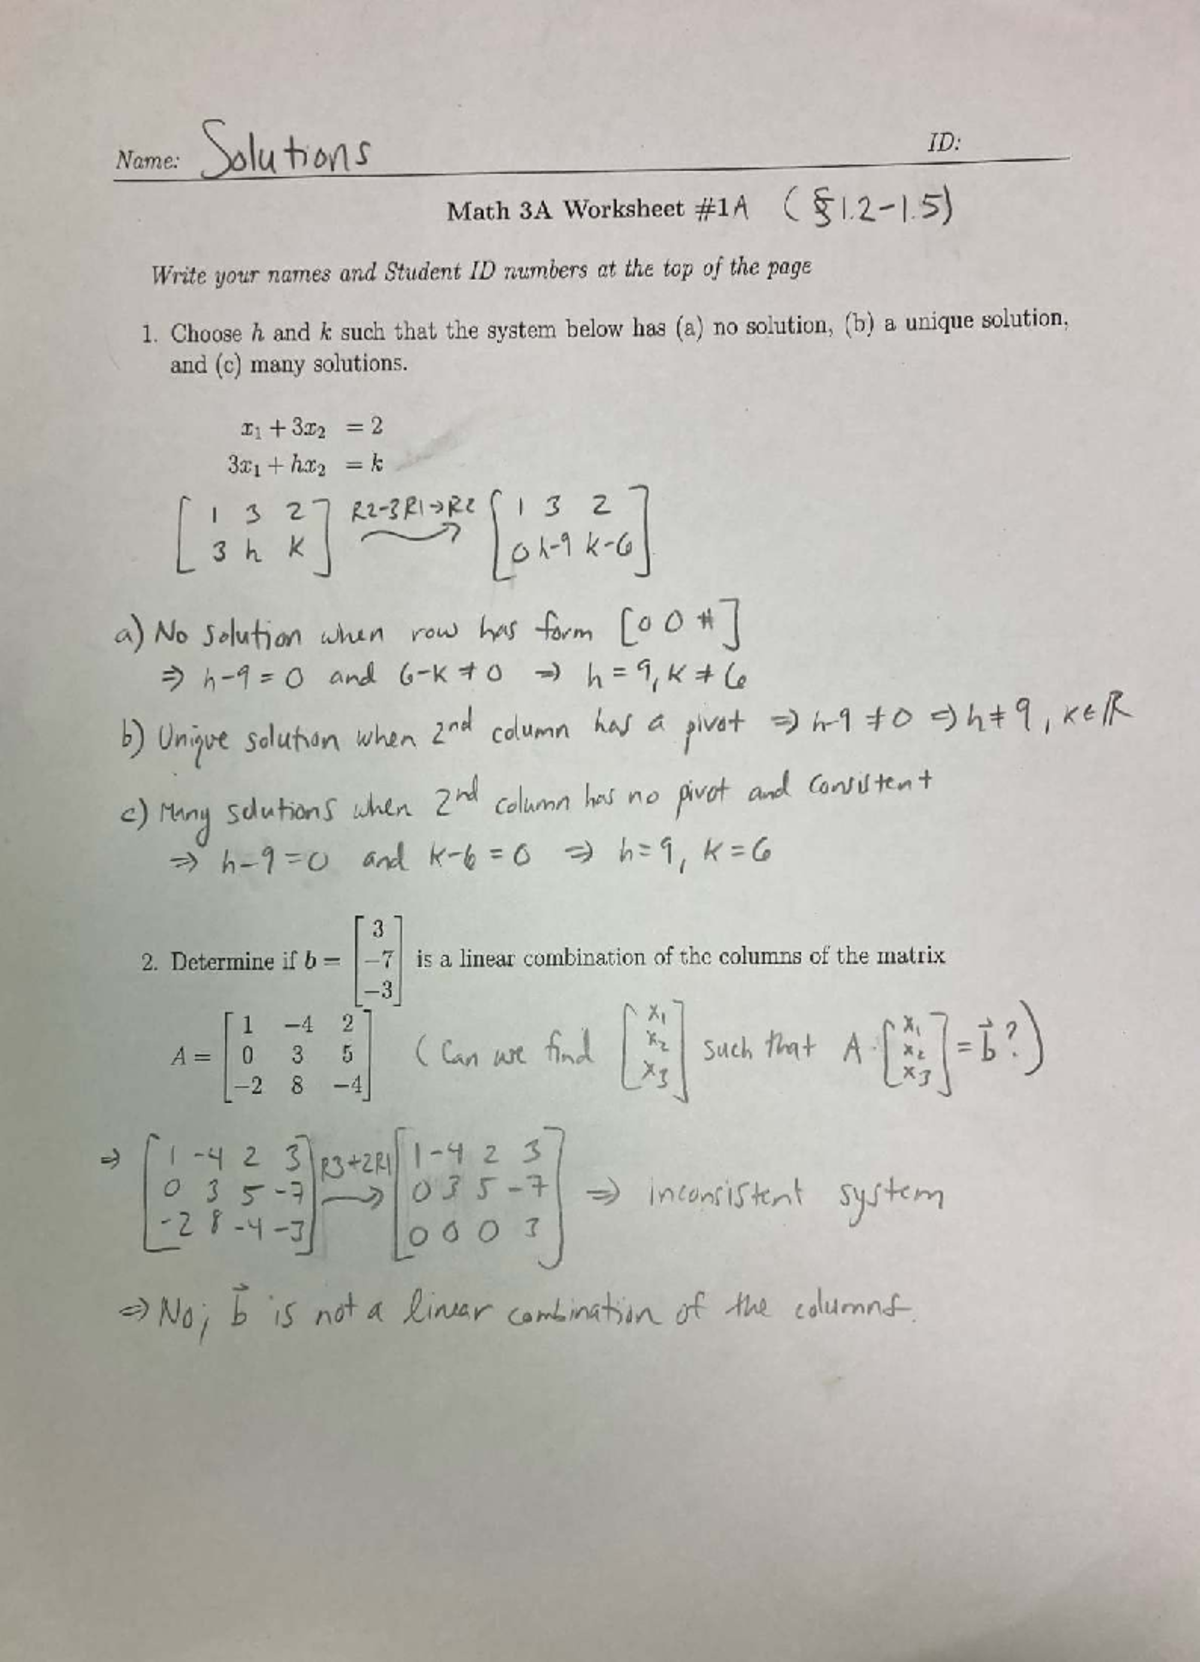 Name: Solutions ID:
Math 3A Worksheet #1A (§1.2-1.5)
Write your names and Student ID numbers at the top of the page
1. Choose h and k such that the system below has (a) no solution, (b) a unique solution,
and (c) many solutions.
x₁ + 3x₂ = 2
3x₁ + hx₂ = k
[1 3 2; 3 h k] R2-3R1→R2 [1 3 2; 0 h-9 k-6]
a) No solution when row has form [0 0 #]
⇒ h-9=0 and 6-k≠0 ⇒ h=9, k≠6
b) Unique solution when 2nd column has a pivot ⇒ h-9≠0 ⇒ h≠9, k∈ℝ
c) Many solutions when 2nd column has no pivot and consistent
⇒ h-9=0 and k-6=0 ⇒ h=9, k=6
2. Determine if b = [3; -7; -3] is a linear combination of the columns of the matrix
A = [1 -4 2; 0 3 5; -2 8 -4] (Can we find [x₁; x₂; x₃] such that A·[x₁; x₂; x₃] = b⃗?)
⇒ [1 -4 2 3; 0 3 5 -7; -2 8 -4 -3] R3+2R1 → [1 -4 2 3; 0 3 5 -7; 0 0 0 3] ⇒ inconsistent system
⇒ No; b⃗ is not a linear combination of the columns.